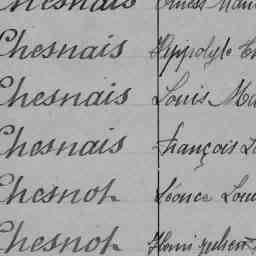 Chesnais
Chesnais Hippolyte
Chesnais Louis
Chesnais François
Chesnot Léonce
Chesnot Henri Julien